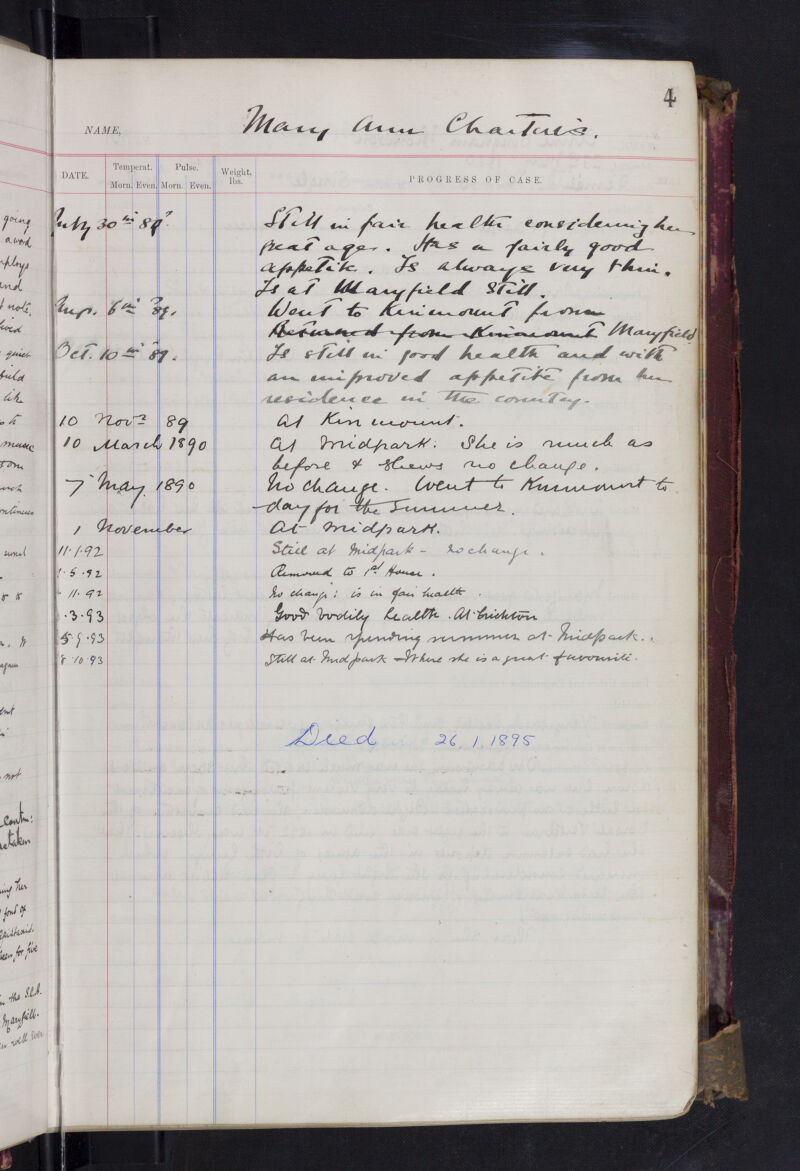 4
NAME, Mary Ann Charteris.
DATE. Temperat. Pulse. Weight, lbs. PROGRESS OF CASE.
Morn. Even. Morn. Even.
July 30th 89. Still in fair health considering her
great age. Has a fairly good
appetite. Is always very thin.
Is at Maryfield still.
6th 89. Went to Kinmount from
Returned from Kinmount Maryfield
Oct. 10th 89. Is still in good health and with
an improved appetite from her
residence in the country.
10 Novr 89 At Kinmount.
10 March 1890 At Midpark. She is much as
before & shews no change.
7 May 1890 No change. Went to Kinmount to
day for the summer.
1 November At Midpark.
11.1.92 Still at Midpark - no change.
1.5.92 Removed to 1st House.
11.92 No change; is in fair health.
.3.93 Good bodily health. At Crichton
5.9.93 Has been spending summer at Midpark.
8.10.93 Still at Midpark - Where she is a great favourite.
Died 26.1.1895
going
a word
employs
and
note,
quiet
field
like
to
music
room
continues
not
contin:
ing her
fond of
for five
in the
Maryfield.
well